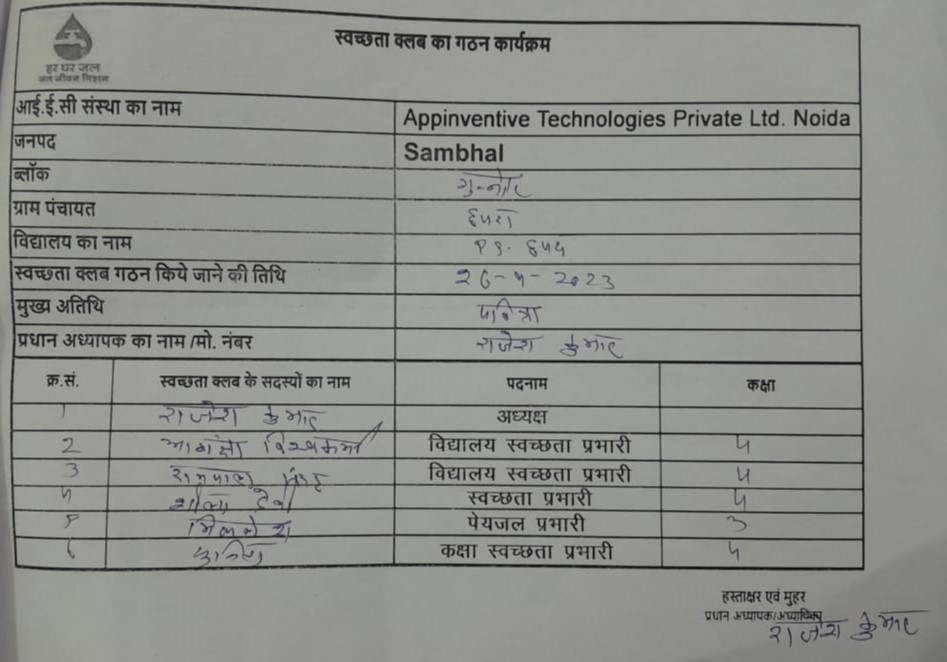 स्वच्छता क्लब का गठन कार्यक्रम
हर घर जल
जल जीवन मिशन
आई.ई.सी संस्था का नाम Appinventive Technologies Private Ltd. Noida
जनपद Sambhal
ब्लॉक गुन्नौर
ग्राम पंचायत
विद्यालय का नाम
स्वच्छता क्लब गठन किये जाने की तिथि 26-5-2023
मुख्य अतिथि पवित्रा
प्रधान अध्यापक का नाम /मो. नंबर राजेश कुमार
क्र.सं. स्वच्छता क्लब के सदस्यों का नाम पदनाम कक्षा
1 राजेश कुमार अध्यक्ष
2 विश्वकर्मा विद्यालय स्वच्छता प्रभारी ५
3 रामपाल सिंह विद्यालय स्वच्छता प्रभारी ५
५ शीला देवी स्वच्छता प्रभारी ५
मिथलेश पेयजल प्रभारी 3
6 कक्षा स्वच्छता प्रभारी ५
हस्ताक्षर एवं मुहर
प्रधान अध्यापक/अध्यापिका
राजेश कुमार